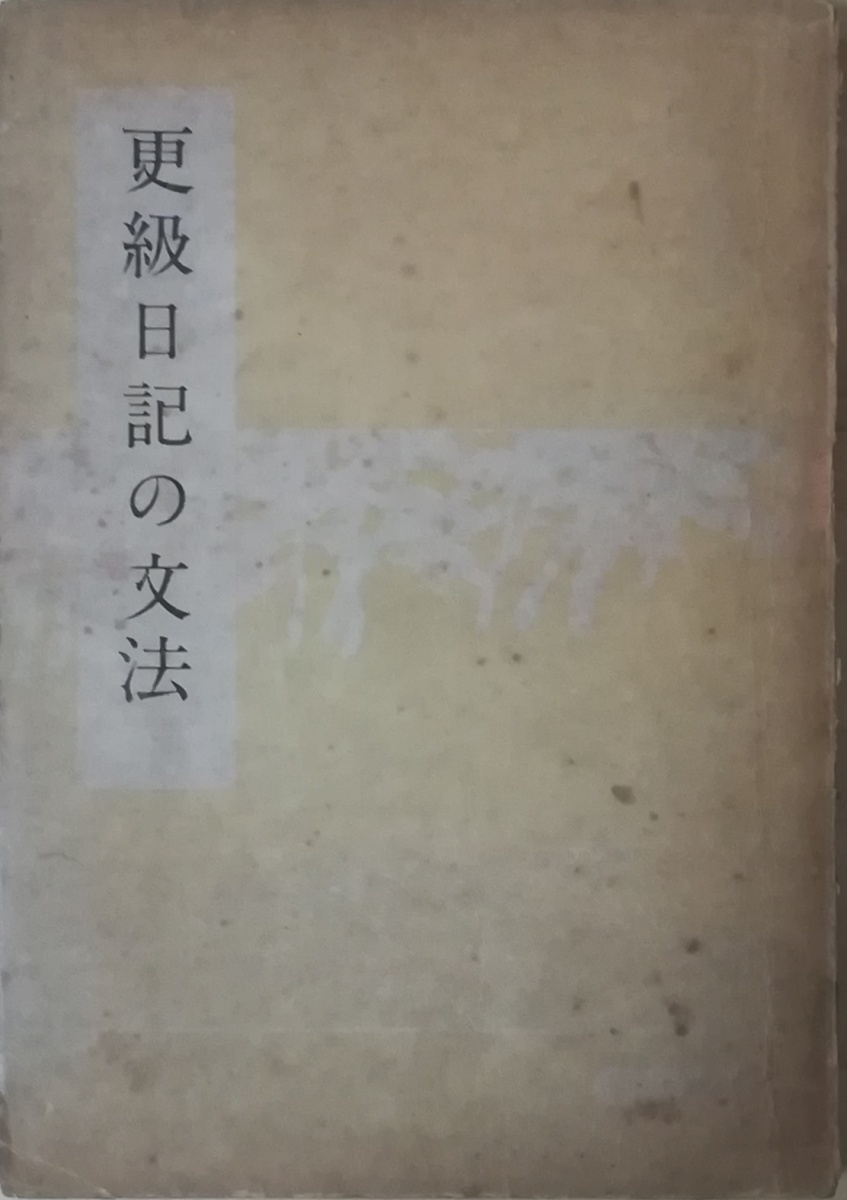 更級日記の文法